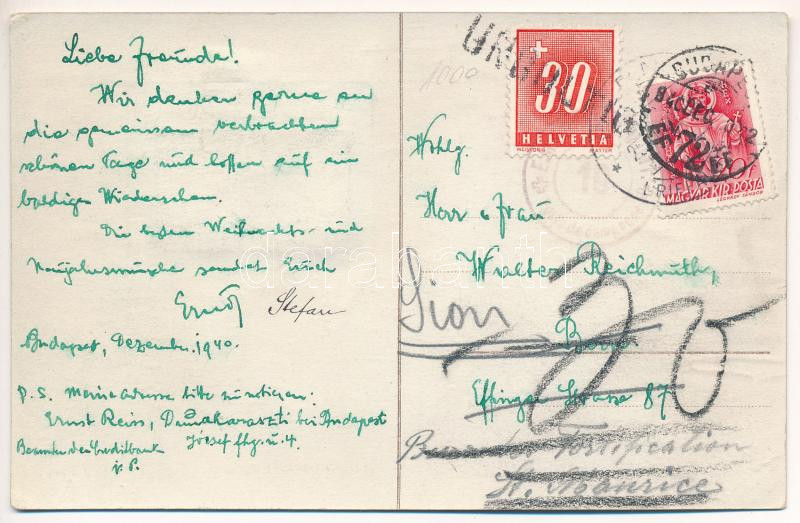 Liebe Freunde!
Wir denken gerne an
die gemeinsam verbrachten
schönen Tage und hoffen auf ein
baldiges Wiedersehen.
Die besten Weihnachts- und
Neujahrswünsche sendet Euch
Ernst Stefan
Budapest, Dezember 1940.
P.S. Meine Adresse bitte zu notieren:
Ernst Reiss, Dunaharaszti bei Budapest
József fhg. u. 4.
Beamter der Creditbank
i. P.
1000
UNGÜLTIG
+
30
HELVETIA
BUDAPEST
940 DEC
MAGYAR KIR. POSTA
Wohlg.
Herr u Frau
Walter Reichmuth,
Sion
Bern
Effinger Strasse 87
Bureau der Fortification
St. Maurice
30
darabanth